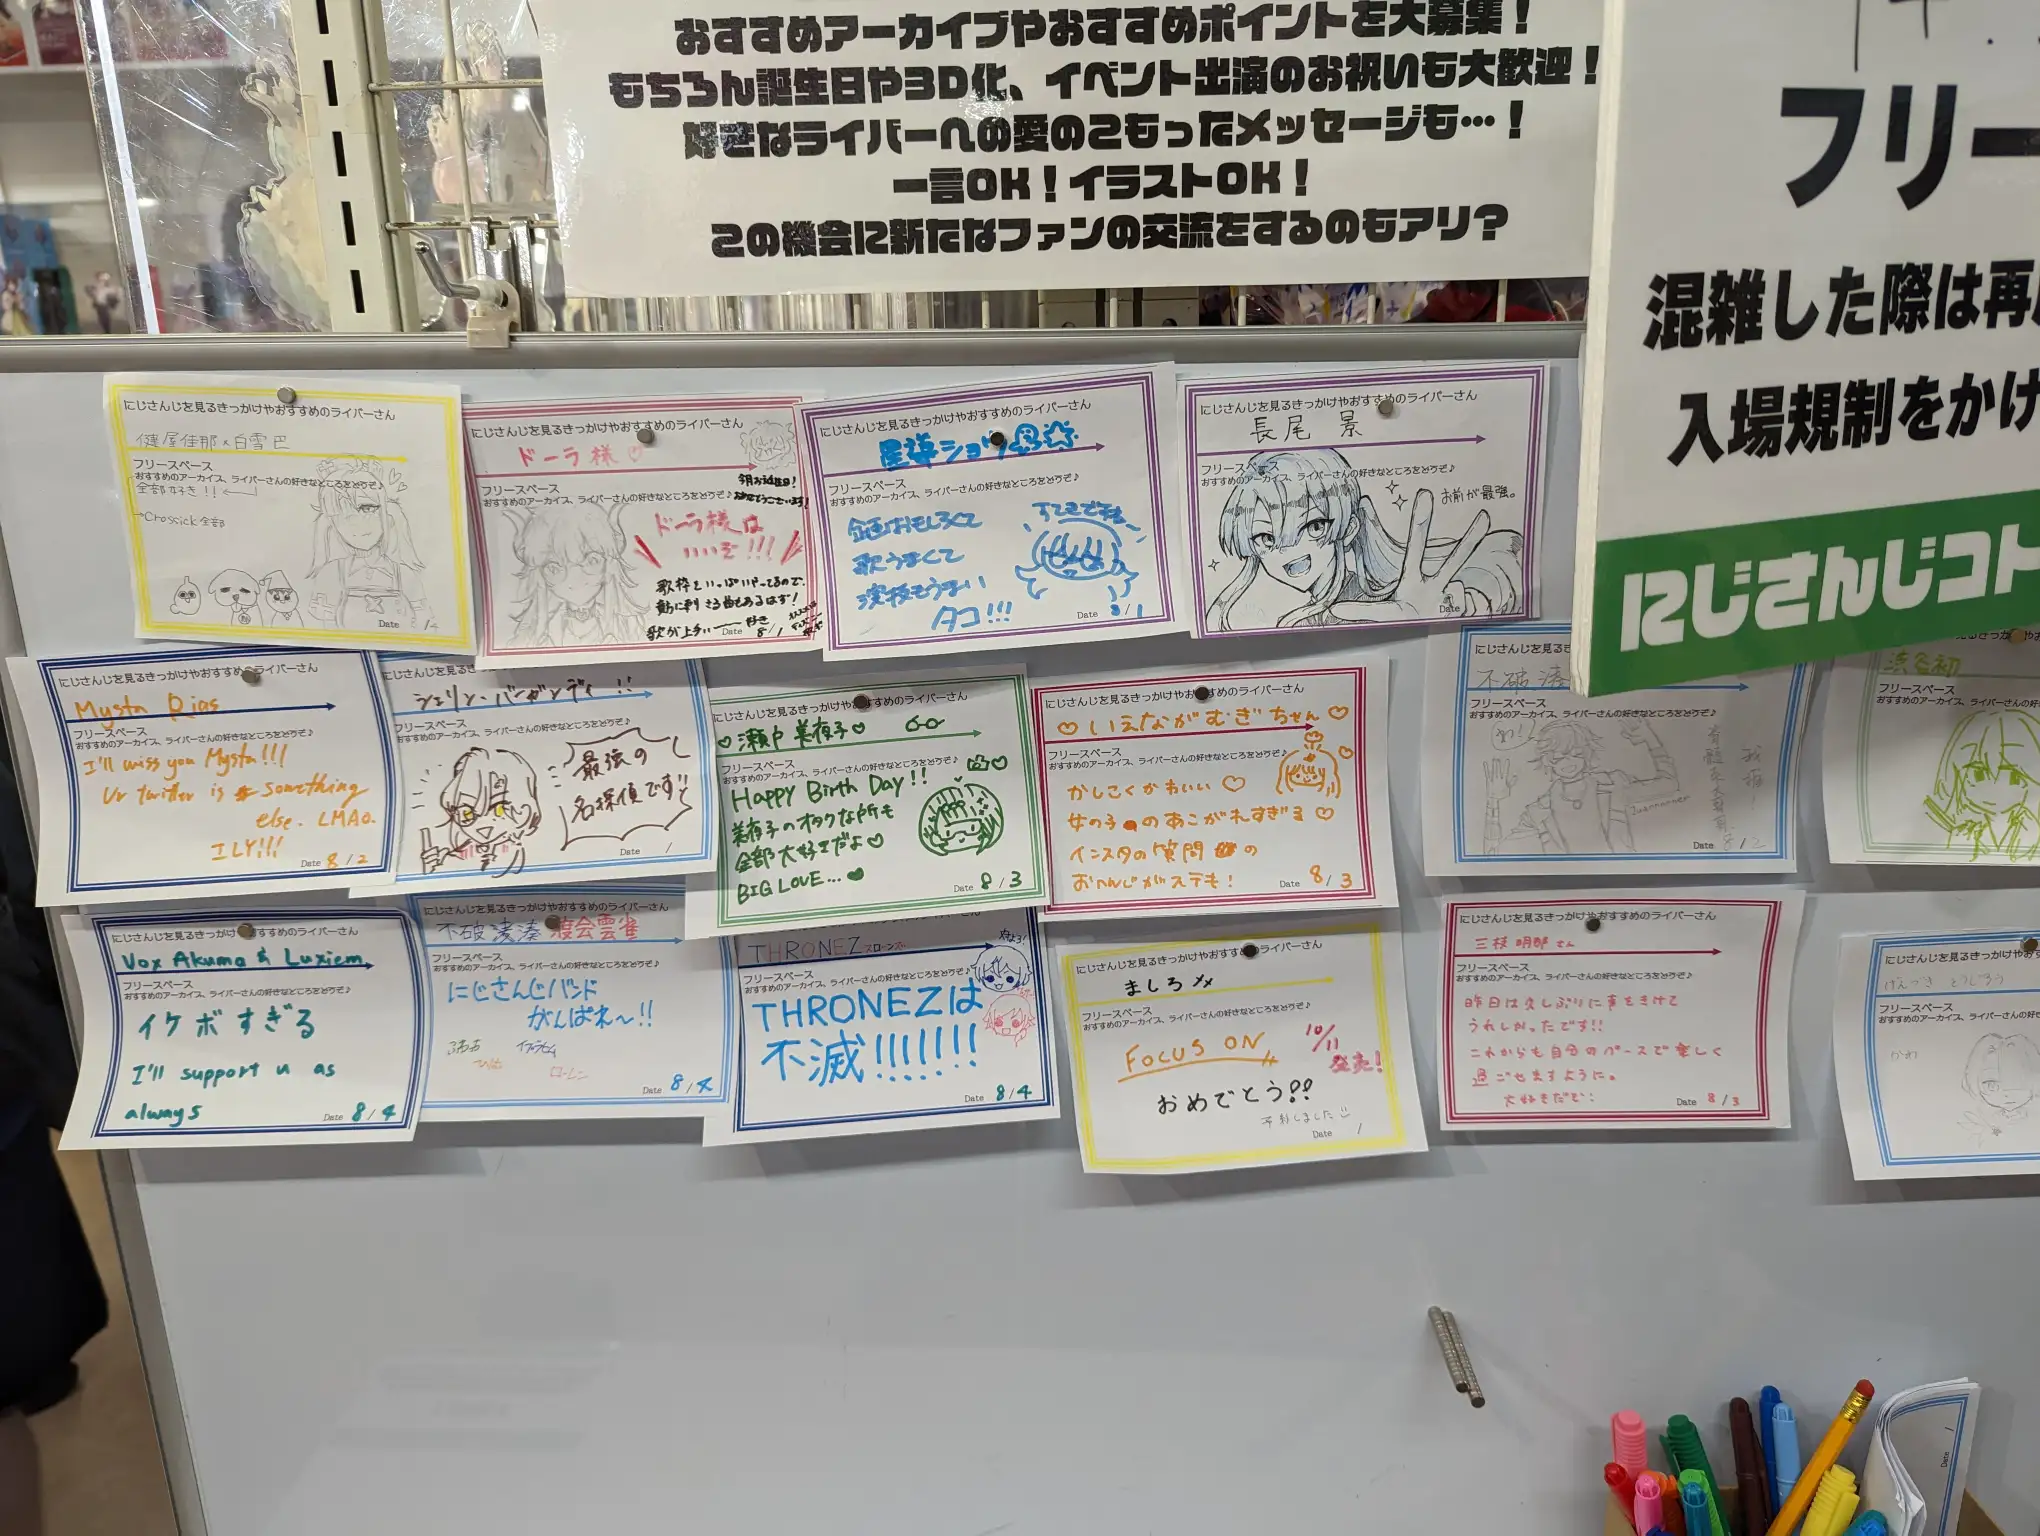 おすすめアーカイブやおすすめポイントを大募集！
もちろん誕生日や3D化、イベント出演のお祝いも大歓迎！
好きなライバーへの愛のこもったメッセージも…！
一言OK！イラストOK！
この機会に新たなファンの交流をするのもアリ？
フリー
混雑した際は再
入場規制をかけ
にじさんじコト
にじさんじを見るきっかけやおすすめのライバーさん
健屋花那×白雪巴
フリースペース
おすすめのアーカイブ、ライバーさんの好きなところをどうぞ♪
全部好き!!
→Crossick全部
Date
にじさんじを見るきっかけやおすすめのライバーさん
ドーラ様♡
今月お誕生日!
おめでとうございます!
フリースペース
おすすめのアーカイブ、ライバーさんの好きなところをどうぞ♪
ドーラ様は
いいぞ!!!
歌枠もいっぱいやってるので、
歌が上手い
Date 8/1
にじさんじを見るきっかけやおすすめのライバーさん
星導ショウ
フリースペース
おすすめのアーカイブ、ライバーさんの好きなところをどうぞ♪
企画おもしろくて
歌うまくて
演技もうまい
タコ!!!
Date 8/1
にじさんじを見るきっかけやおすすめのライバーさん
長尾 景
フリースペース
おすすめのアーカイブ、ライバーさんの好きなところをどうぞ♪
お前が最強。
Date
にじさんじを見るきっかけやおすすめのライバーさん
Mysta Rias
フリースペース
おすすめのアーカイブ、ライバーさんの好きなところをどうぞ♪
I'll miss you Mysta!!!
Ur twitter is something
else. LMAO.
ILY!!!
Date 8/2
にじさんじを見るきっかけやおすすめのライバーさん
シェリン・バーガンディ!!
フリースペース
おすすめのアーカイブ、ライバーさんの好きなところをどうぞ♪
最強の
名探偵です!!
Date /
にじさんじを見るきっかけやおすすめのライバーさん
♡瀬戸美夜子♡
フリースペース
おすすめのアーカイブ、ライバーさんの好きなところをどうぞ♪
Happy Birth Day!!
美夜子のオタクな所も
全部大好きだよ♡
BIG LOVE...♥
Date 8/3
にじさんじを見るきっかけやおすすめのライバーさん
♡いえながむぎちゃん♡
フリースペース
おすすめのアーカイブ、ライバーさんの好きなところをどうぞ♪
かしこくかわいい♡
女の子のあこがれすぎる♡
インスタの質問の
おへんじがステキ!
Date 8/3
にじさんじを見る
不破湊
フリースペース
おすすめのアーカイブ、ライバーさんの好きなところをどうぞ♪
Date 8/2
見るきっかけやお
渋谷初
フリースペース
おすすめのアーカイブ、ライバー
にじさんじを見るきっかけやおすすめのライバーさん
Vox Akuma & Luxiem
フリースペース
おすすめのアーカイブ、ライバーさんの好きなところをどうぞ♪
イケボすぎる
I'll support u as
always
Date 8/4
にじさんじを見るきっかけやおすすめのライバーさん
不破湊 渡会雲雀
フリースペース
おすすめのアーカイブ、ライバーさんの好きなところをどうぞ♪
にじさんじバンド
がんばれ〜!!
ローレン
Date 8/4
THRONEZ スローンズ
フリースペース
おすすめのアーカイブ、ライバーさんの好きなところをどうぞ♪
THRONEZは
不滅!!!!!!!
Date 8/4
にじさんじを見るきっかけやおすすめのライバーさん
ましろ
フリースペース
おすすめのアーカイブ、ライバーさんの好きなところをどうぞ♪
FOCUS ON
10/11
発売!
おめでとう!!
予約しました
Date /
にじさんじを見るきっかけやおすすめのライバーさん
三枝明那さん
フリースペース
おすすめのアーカイブ、ライバーさんの好きなところをどうぞ♪
昨日は久しぶりに声をきけて
うれしかったです!!
これからも自分のペースで楽しく
過ごせますように。
Date 8/3
にじさんじを見るきっかけやおすすめ
フリースペース
おすすめのアーカイブ、ライバーさん
Date /